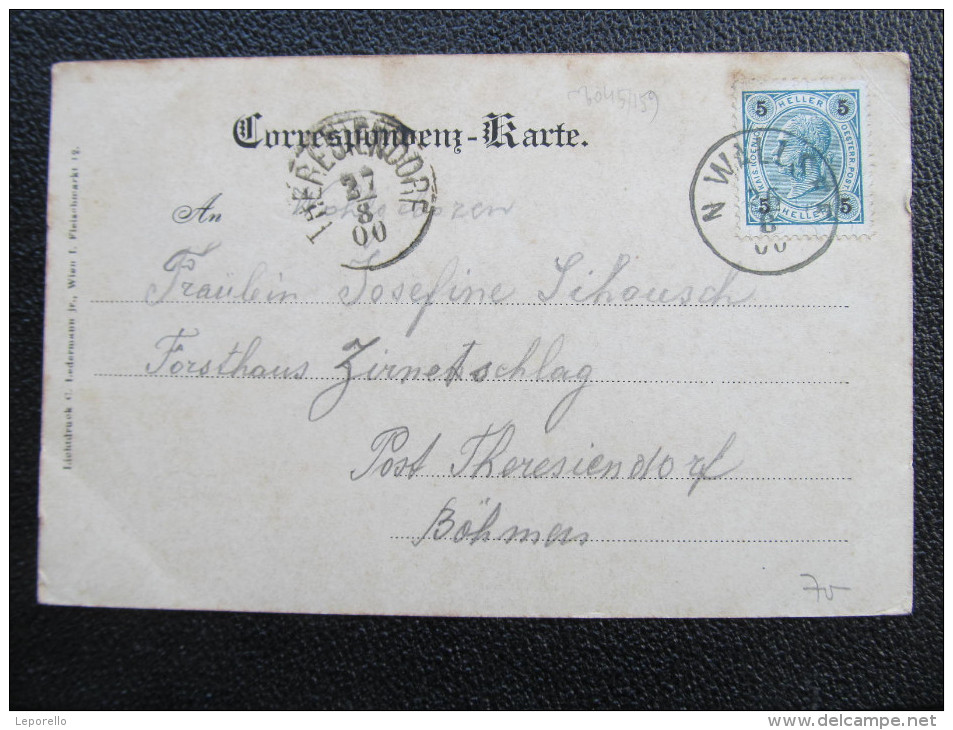 Correspondenz-Karte.
THERESIENDORF
8
00
5 HELLER 5
KAIS. KOENIGL.
OESTERR. POST
5 HELLER 5
8
00
An
Fräulein Josefine Sihousch
Forsthaus Zirnetschlag
Post Theresiendorf
Böhmen
Lichtdruck C. Ledermann jr., Wien I. Fleischmarkt 12.
Leporello
delcampe.net